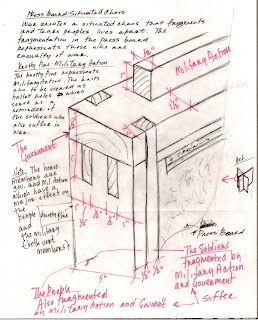 Press Board: Situated Chaos
War creates a situated chaos that fragments
and tears peoples lives apart. The
fragmentation in the press board
represents those who are
casualty of war.
Knotty Pine: Military Action
The knotty Pine represents
Military Action. The knots
are to be viewed as
bullet holes which
serve as a
reminder of
the soldiers who
also suffer in
war.
Military Action
The
Government
Note: The
members are
gov. and Mil. Action
which have a
major effect on
the people
and
the military
both
members
Press Board
The Soldiers
fragmented by
Military Action
and Government
suffer
The People
Also fragmented
by Military Action and
5"